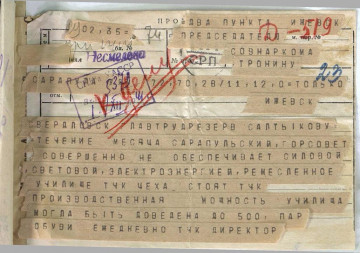 ПР ДВА ПУНКТ ИЖЕВСК
02.35
ПРЕДСЕДАТЕЛ
СОВНАРКОМА
ТРОНИНУ
23
САРАПУЛА 28/11.12,0=
ИЖЕВСК
ГЛАВТРУДРЕЗЕРВ САЛТЫКОВУ
ТЕЧЕНИЕ МЕСЯЦА САРАПУЛЬСКИЙ, ГОРСОВЕТ
СОВЕРШЕННО НЕ ОБЕСПЕЧИВАЕТ СИЛОВОЙ
СВЕТОВОЙ, ЭЛЕКТРОЭНЕРГИЕЙ, РЕМЕСЛЕННОЕ
УЧИЛИЩЕ ТЧК ЧЕХА СТОЯТ ТЧК
ПРОИЗВОДСТВЕННАЯ МОЩНОСТЬ УЧИЛИЩА
МОГЛА БЫТЬ ДОВЕДЕНА ДО 500, ПАР
ОБУВИ ЕЖЕДНЕВНО ТЧК ДИРЕКТОР